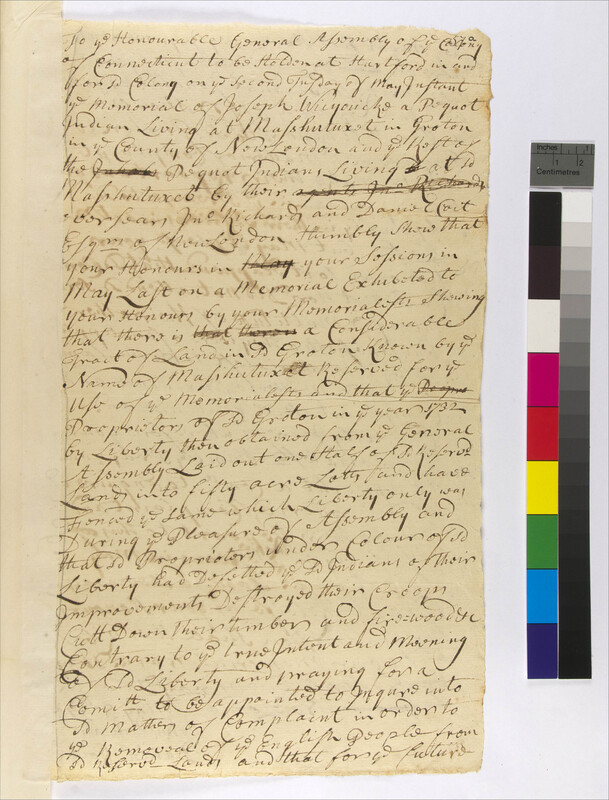 To ye Honourable General Assembly of ye Colony
of Connecticut to be Holden at Hartford in and
for sd Colony on ye Second Tusday of May Instant
ye Memorial of Joseph Wuyouike a Pequot
Indian Living at Masshutuxet in Groton
in ye County of New London and ye Rest of
the Pequot Indians Living at sd
Masshutuxet by their agents Jno Richards
oversears Jno Richards and Daniel Coit
Esqrs of New London Humbly Show that
your Honours in May your Sessions in
May Last on a Memorial Exhibeted to
your Honours by your Memorialests Shewing
that there is that there is a Considerable
Tract of Land in sd Groton Known by ye
Name of Masshutuxet Reserved for ye
Use of ye Memorialests and that ye
Proprietors of sd Groton in ye year 1732
by Liberty then obtained from ye General
Assembly Laid out one Half of sd Reserved
Lands into fifty acre Lotts and have
Fenced ye Same which Liberty only was
During ye Pleasure of Assembly and
that sd Proprietors under Colour of sd
Liberty had Desetted ye sd Indians of their
Improvements Destroyed their Crops
Cutt Down their timber and firewood &c
Contrary to ye true Intent and Meening
of sd Liberty and praying for a
Comitt to be appointed to Inqure into
sd Matters of Complaint in order to
ye Removeal of ye English People from
sd Reserved Lands and that for ye Future
Inches
1
2
Centimetres